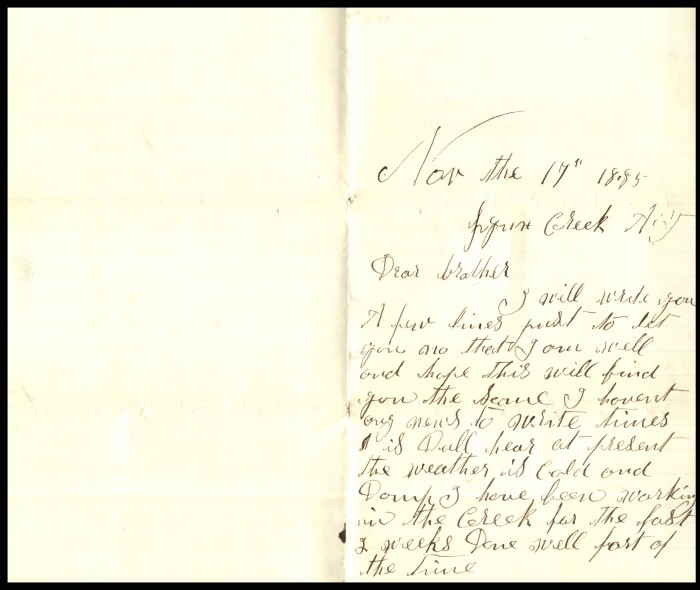 Nov the 17th 1885
Creek
Dear brother
I will write you
A few lines just to let
you no that I am well
and hope this will find
you the Same I havent
any news to write times
is Dull hear at present
the weather is Cold and
Damp I have been working
in the Creek for the past
2 weeks Done well part of
the time